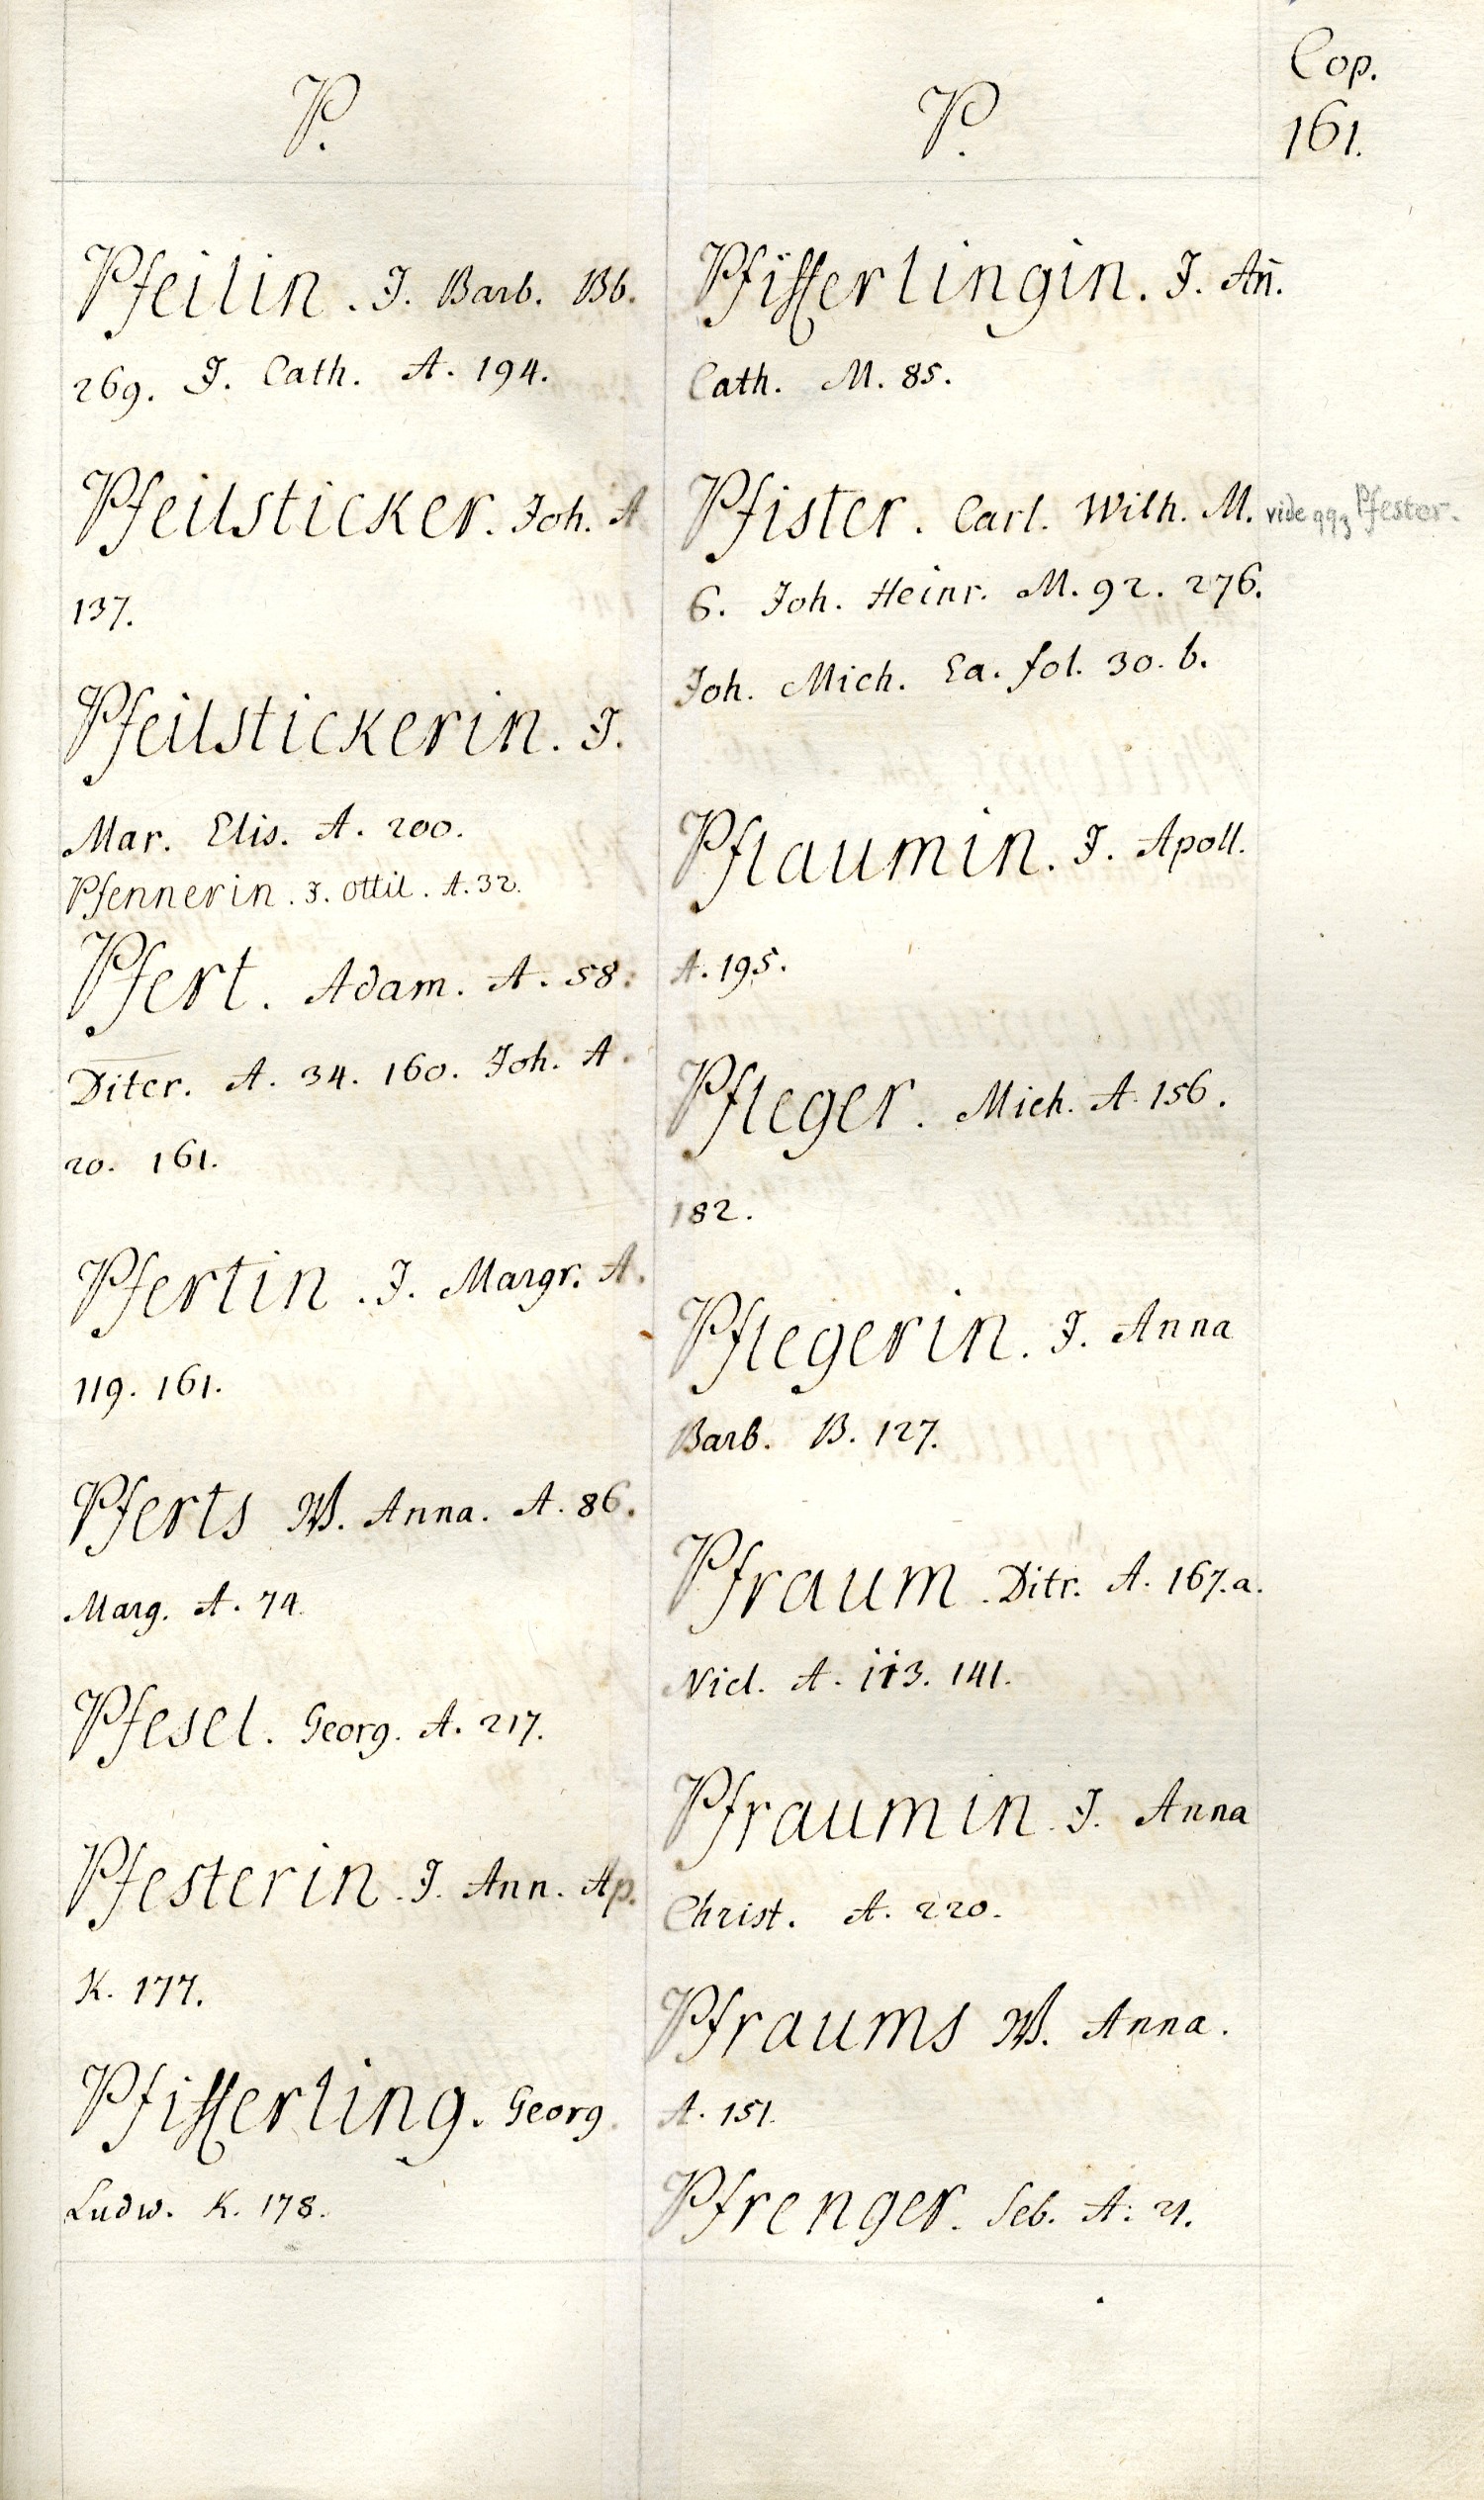 Cop.
161.
P.
Pfeilin. J. Barb. Bb.
269. J. Cath. A. 194.
Pfeilsticker. Joh. A
137.
Pfeilstickerin. J.
Mar. Elis. A. 200.
Pfennerin. J. Ottil. A. 32.
Pfert. Adam. A. 58.
Diter. A. 34. 160. Joh. A.
20. 161.
Pfertin. J. Margr. A.
119. 161.
Pferts W. Anna. A. 86.
Marg. A. 74.
Pfesel. Georg. A. 217.
Pfesterin. J. Ann. Ap.
K. 177.
Pfifferling. Georg.
Ludw. K. 178.
P.
Pfifferlingin. J. An̄.
Cath. M. 85.
Pfister. Carl. Wilh. M. vide Pfester.
6. Joh. Heinr. M. 92. 276.
Joh. Mich. Ea. fol. 30. b.
Pflaumin. J. Apoll.
A. 195.
Pfleger. Mich. A. 156.
182.
Pflegerin. J. Anna
Barb. B. 127.
Pfraum. Ditr. A. 167. a.
Nicl. A. 113. 141.
Pfraumin. J. Anna
Christ. A. 220.
Pfraums W. Anna.
A. 151.
Pfrenger. Seb. A. 21.